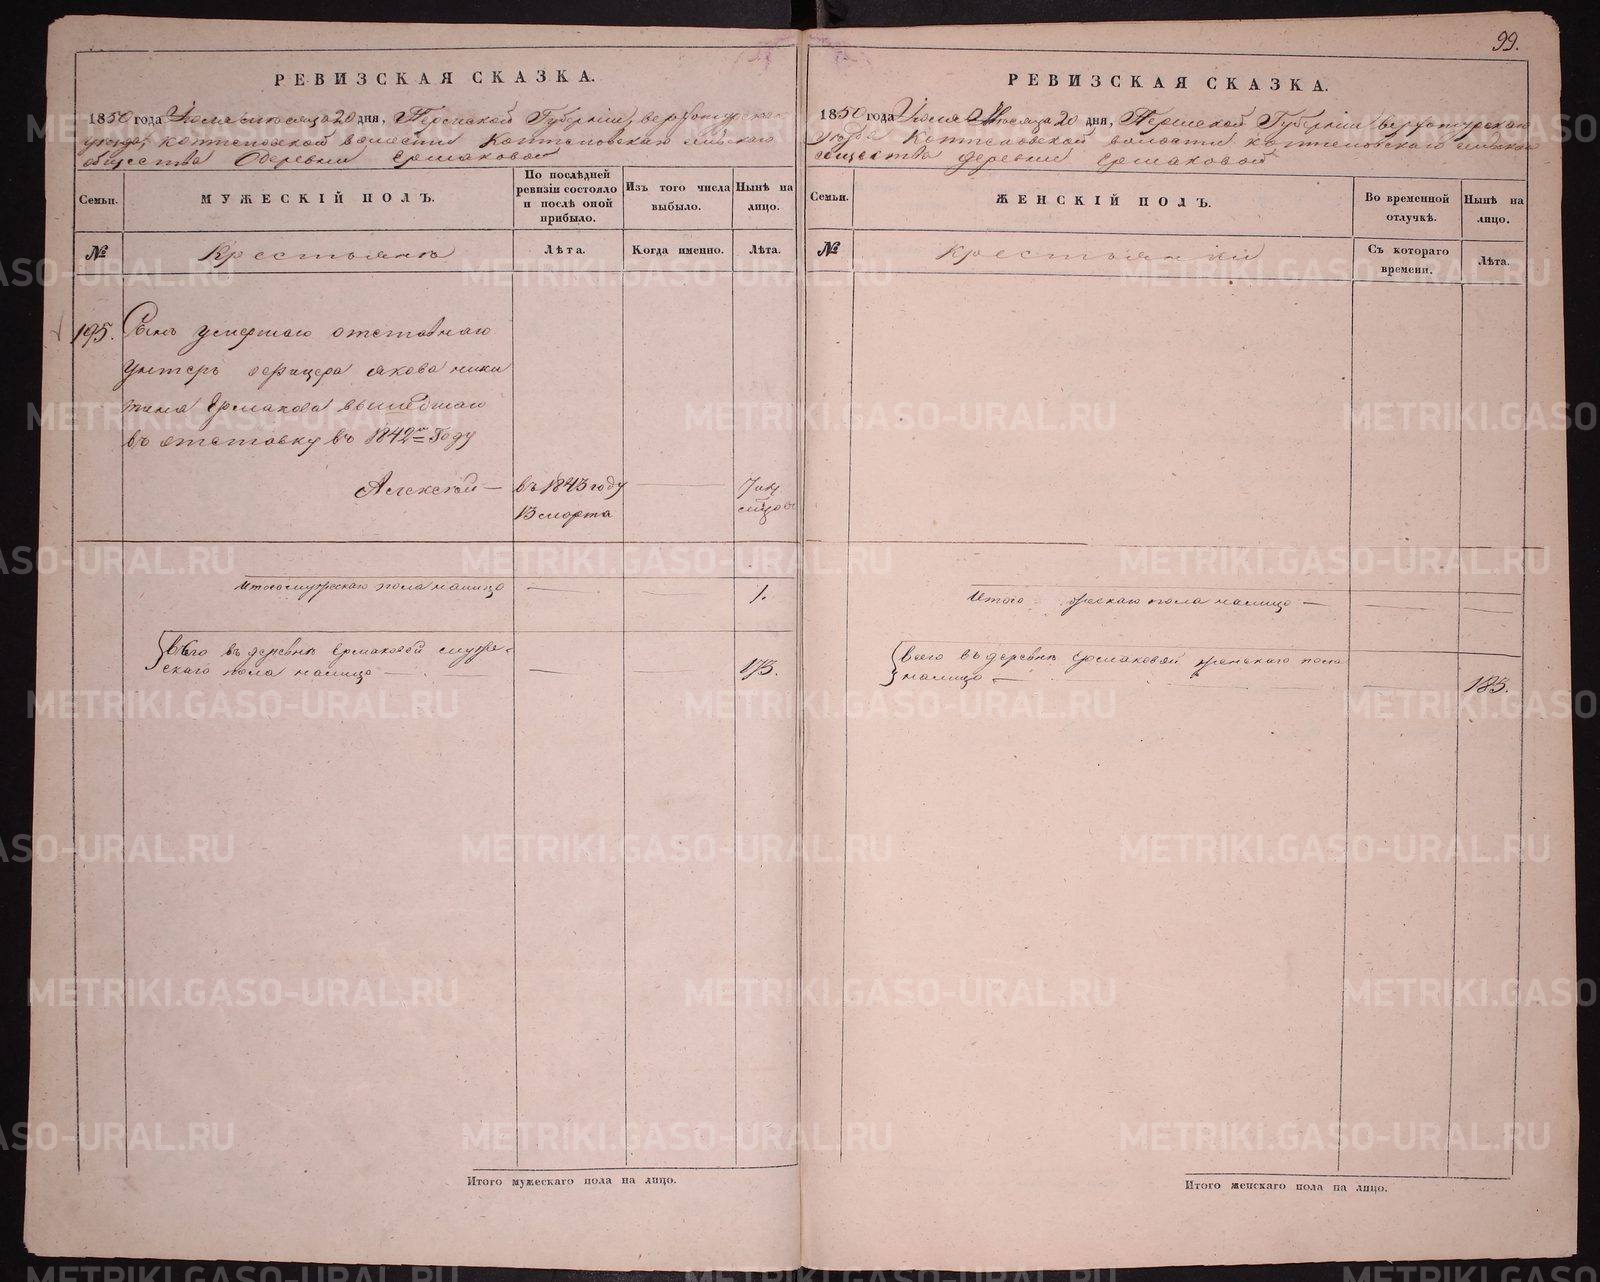 99.
РЕВИЗСКАЯ СКАЗКА.
1850 года Июля месяца 20 дня, Пермской Губернiи, верхотурскаго
уезда, коптеловской волости Коптеловскаго сельскаго
общества деревни Ермаковой
Семьи.
МУЖЕСКIЙ ПОЛЪ.
По послѣдней ревизiи состояло и послѣ оной прибыло.
Изъ того числа выбыло.
Нынѣ на лицо.
№
Крестьянъ
Лѣта.
Когда именно.
Лѣта.
195.
Сынъ умершаго отставнаго
унтеръ офицера якова ники
тина Ермакова вышедшаго
въ отставку въ 1842м Году
Алексѣй — въ 1843 году — 7
13 марта
Итого мужескаго пола налицо — 1.
Всего въ деревнѣ Ермаковой муже-
скаго пола налицо — 173.
Итого мужескаго пола на лицо.
РЕВИЗСКАЯ СКАЗКА.
1850 года Июля Месяца 20 дня, Пермской Губернiи верхотурскаго
уезда Коптеловской волости коптеловскаго сельскаго
общества деревни Ермаковой
Семьи.
ЖЕНСКIЙ ПОЛЪ.
Во временной отлучкѣ.
Нынѣ на лицо.
№
Крестьянки
Съ котораго времени.
Лѣта.
Итого женскаго пола налицо —
Всего въ деревнѣ Ермаковой женскаго пола
налицо — 185.
Итого женскаго пола на лицо.
METRIKI.GASO-URAL.RU